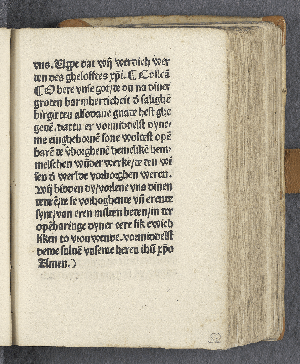 vns. Uppe dat wy werdich wer
den des gheloftes xpi. Collecta
O here vnse got/de du na diner
groten barmherticheit d salighē
birgitten alsodane gnate hest ghe
geuē. dattu er vormiddelst dyne
me eingheborē sone woldest opē
barē te vorborghenē hemelikē hem
melschen wūder werke/te den wi
sen d werlde vorborghen weren.
Wij bidden dy/vorlene vns dinen
denerē/te se vorhoghente vn erente
synt/van eren misten beten/in ter
opēbaringe dyner eere sik ewich
liken to vrouwende. vormiddelst
deme suluē vnseme heren ihū xpo
Amen.